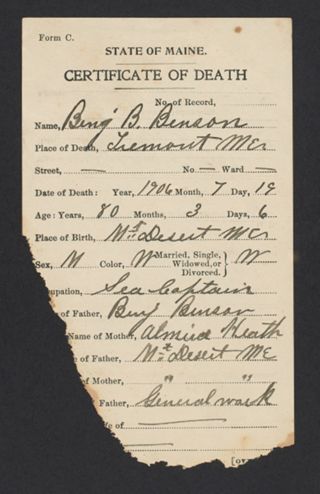 Form C.
STATE OF MAINE.
CERTIFICATE OF DEATH
No. of Record,
Name, Benj B. Benson
Place of Death, Tremont Me
Street, — No. — Ward —
Date of Death: Year, 1906 Month, 7 Day, 19
Age: Years, 80 Months, 3 Days, 6
Place of Birth, Mt Desert Me
Sex, M Color, W Married, Single, Widowed, or Divorced. } W
cupation, Sea Captain
of Father, Benj Benson
Name of Mother, Almira Heath
of Father, Mt Desert Me
of Mother, " "
Father, General work
fe of
[ov